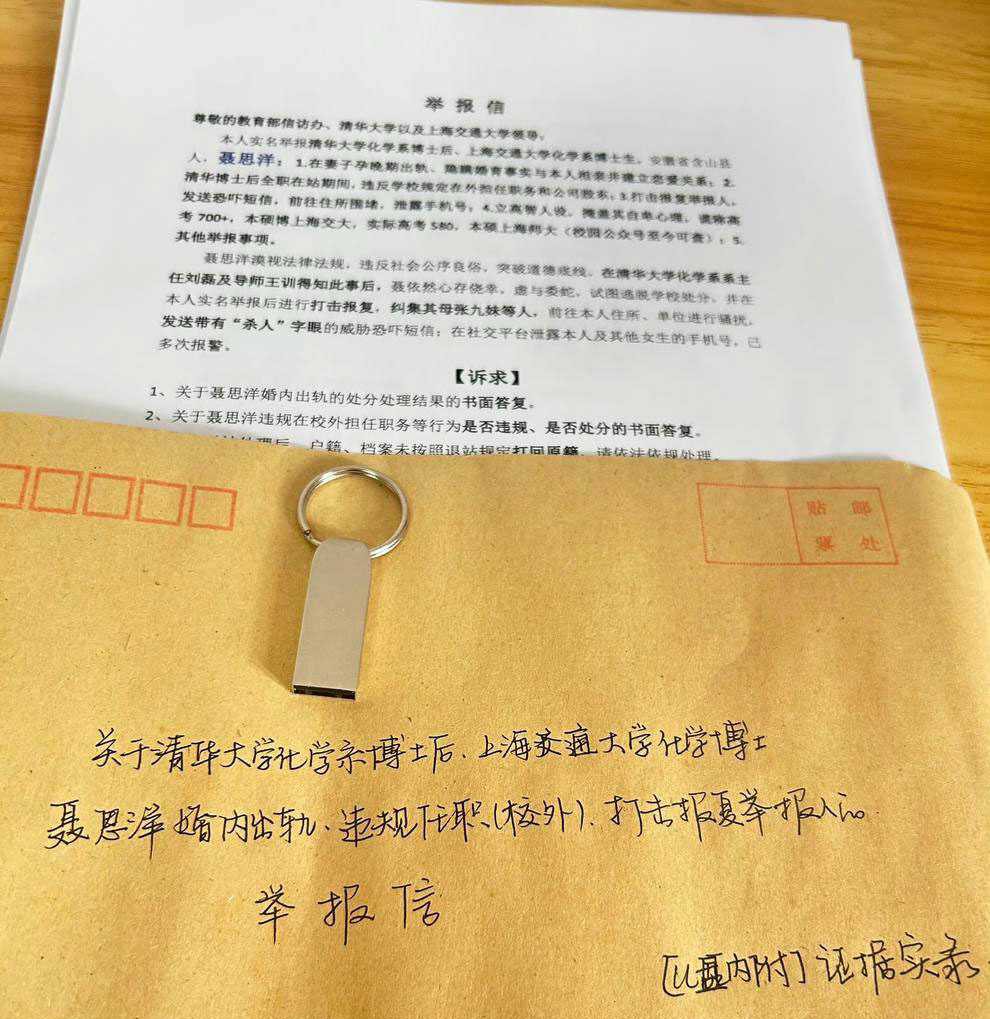 举报信
尊敬的教育部信访办、清华大学以及上海交通大学领导，
本人实名举报清华大学化学系博士后、上海交通大学化学系博士生，安徽省含山县
人，聂思洋：1.在妻子孕晚期出轨、隐瞒婚育事实与本人相亲并建立恋爱关系；2.
清华博士后全职在站期间，违反学校规定在外担任职务和公司股东；3.打击报复举报人，
发送恐吓短信，前往住所围堵，泄露手机号；4.立高智人设，掩盖其自卑心理，谎称高
考700+，本硕博上海交大，实际高考580，本硕上海师大（校园公众号至今可查）；5.
其他举报事项。
聂思洋漠视法律法规，违反社会公序良俗，突破道德底线。在清华大学化学系系主
任刘磊及导师王训得知此事后，聂依然心存侥幸，虚与委蛇，试图逃脱学校处分，并在
本人实名举报后进行打击报复，纠集其母张九妹等人，前往本人住所、单位进行骚扰，
发送带有“杀人”字眼的威胁恐吓短信；在社交平台泄露本人及其他女生的手机号，已
多次报警。
【诉求】
1、关于聂思洋婚内出轨的处分处理结果的书面答复。
2、关于聂思洋违规在校外担任职务等行为是否违规、是否处分的书面答复。
处理后，户籍、档案未按照退站规定打回原籍，请依法依规处理。
贴邮
票处
关于清华大学化学系博士后、上海交通大学化学博士
聂思洋婚内出轨、违规任职（校外）、打击报复举报人的
举报信
[U盘内附]证据实录